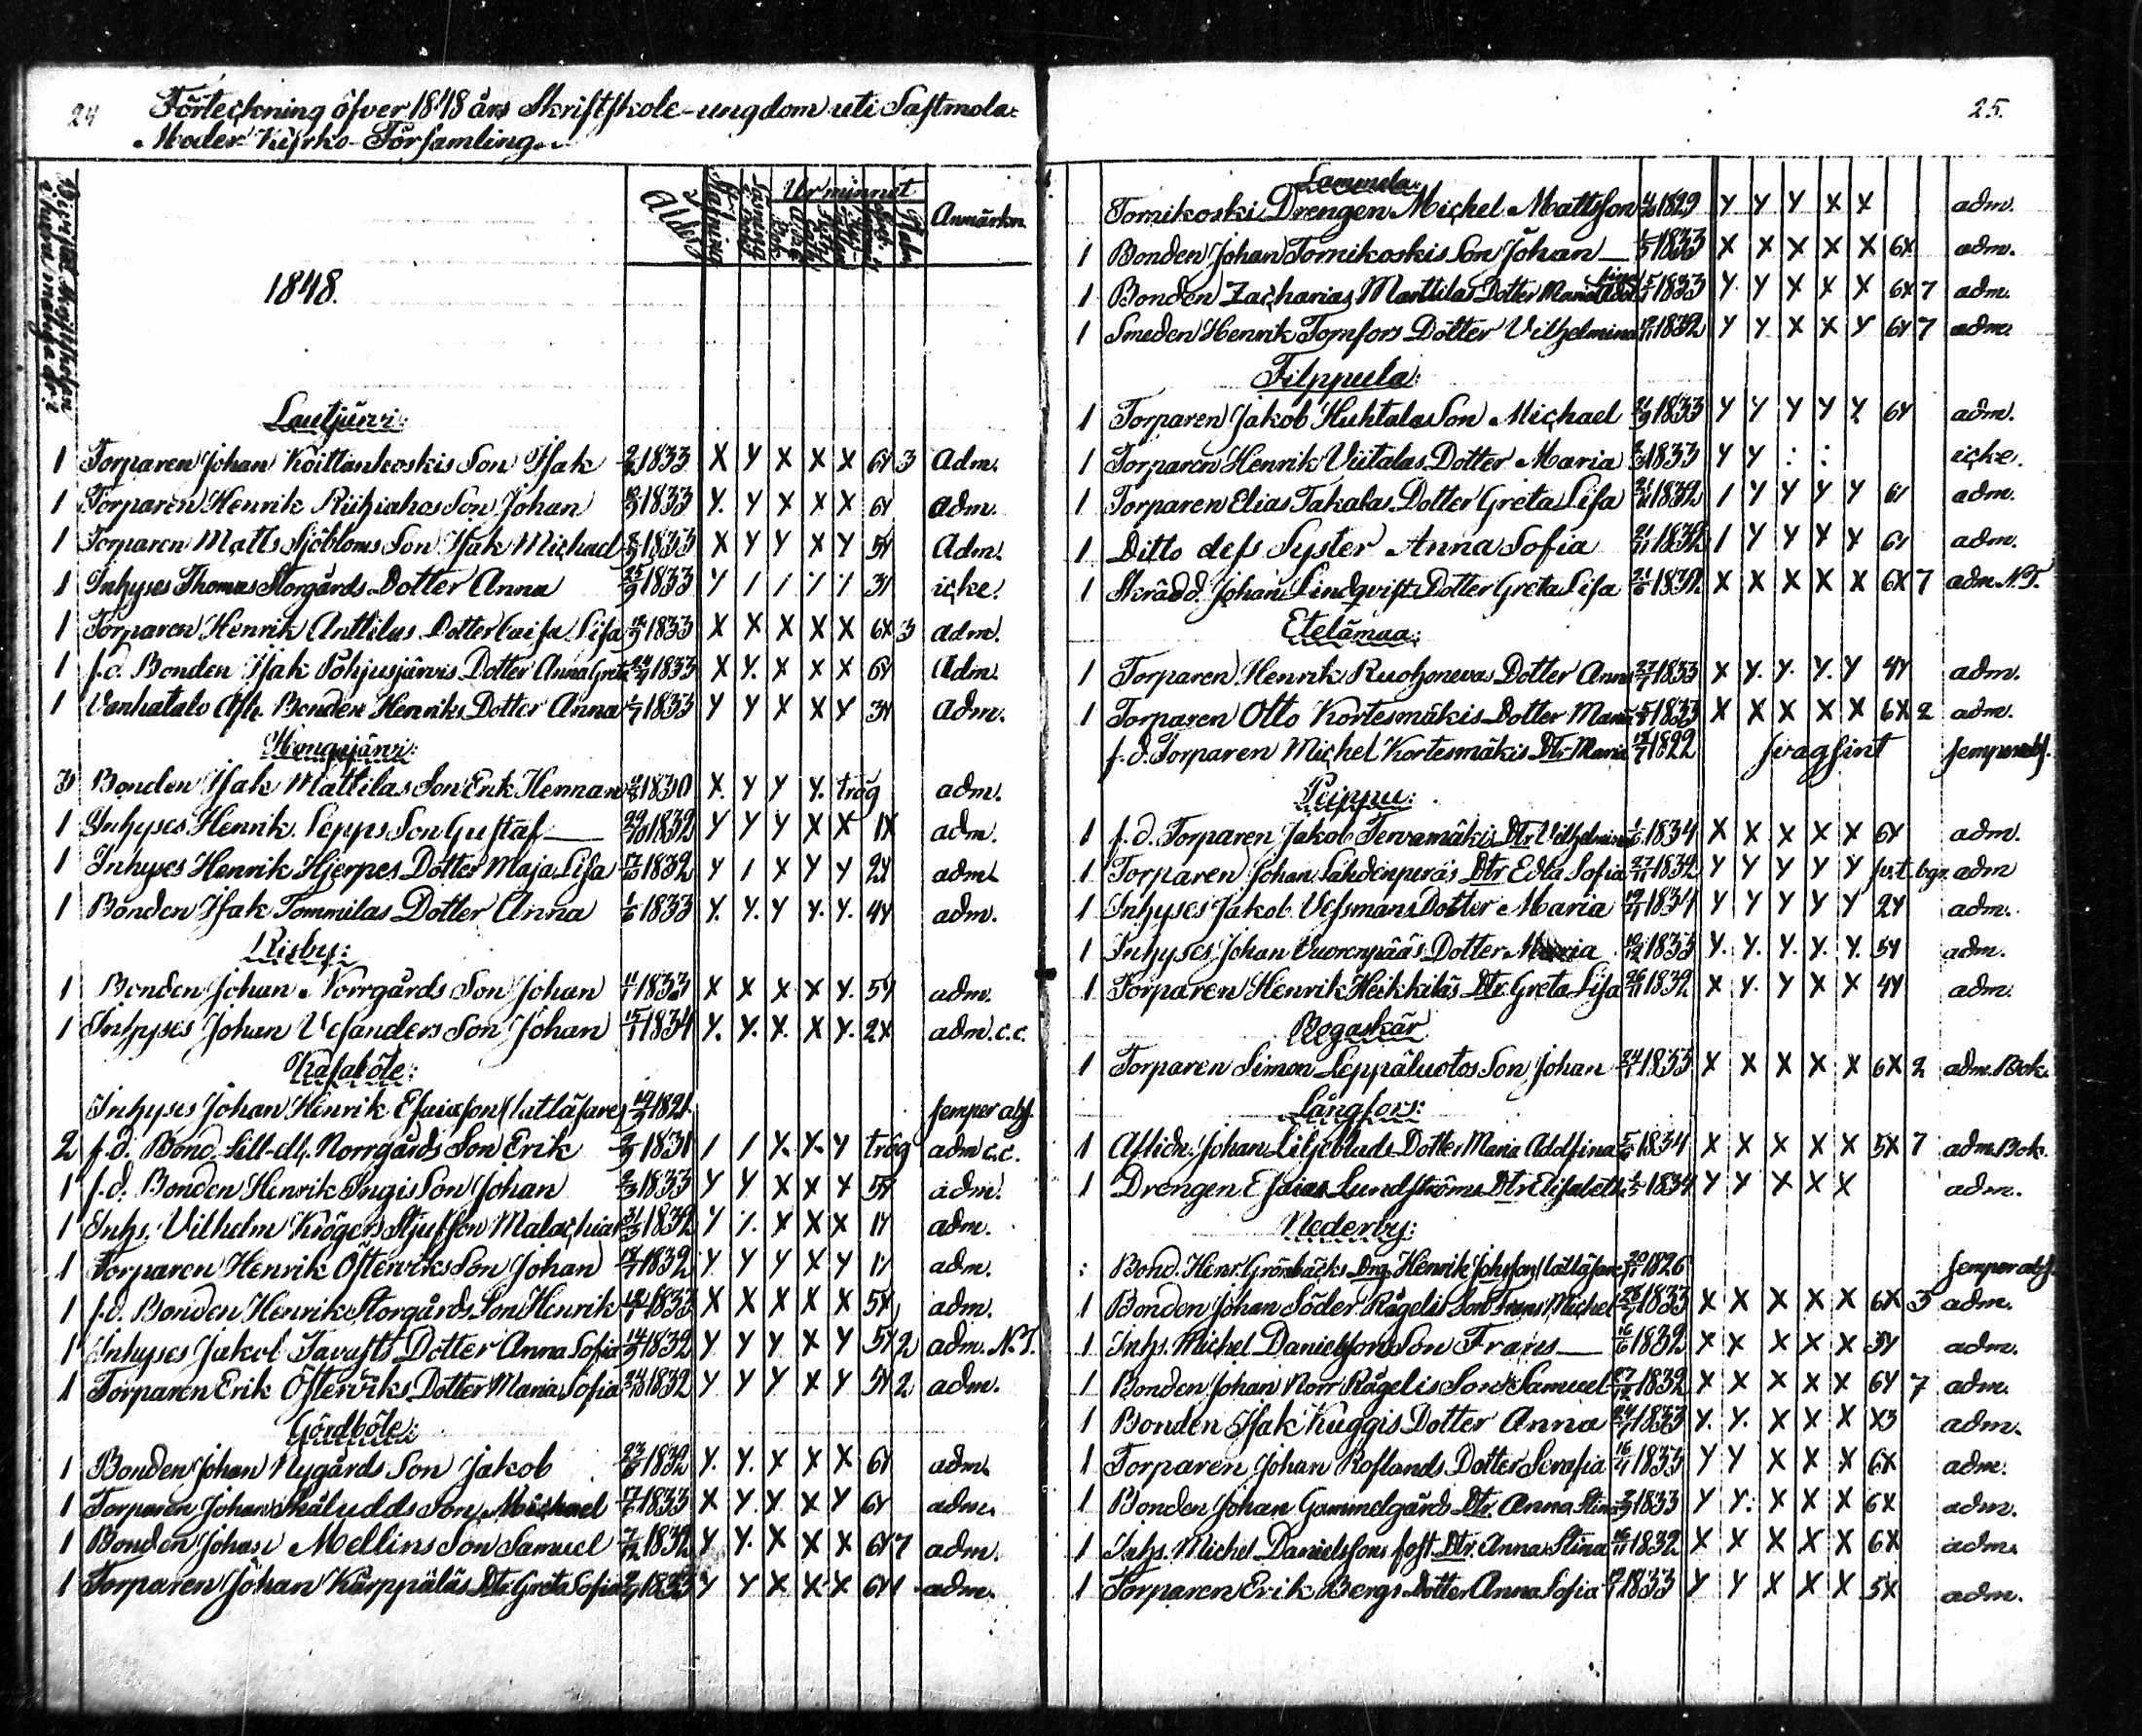 24
Förteckning öfver 1848 års Skriftskole-ungdom uti Sastmola
Moder Kyrko-Församling.
Ålder
Ur minnet
Anmärkn.
1848.
Lautjärvi:
1 Torparen Johan Koittankoskis Son Isak 1833 X Y X X X 6Y 3 Adm.
1 Torparen Henrik Riihiahos Son Johan 1833 Y. Y X X X 6Y adm.
1 Torparen Matts Sjöbloms Son Isak Michael 1833 X Y Y X Y 5Y Adm.
1 Inhyses Thomas Storgårds Dotter Anna 25/9 1833 Y / / 3Y icke.
1 Torparen Henrik Anttilas Dotter Caisa Lisa 1833 X X X X X 6X 3 adm.
1 f.d. Bonden Isak Pohjusjärvis Dotter Anna Greta 1833 X Y. X X X 6Y Adm.
1 Vanhatalo Afh. Bonden Henriks Dotter Anna 1833 Y Y X X Y 3Y Adm.
Hongajärvi:
3 Bonden Isak Mattilas Son Erik Herman 1830 X. Y Y Y. trög adm.
1 Inhyses Henrik Lepps Son Gustaf 29/10 1832 Y Y Y X X 1X adm.
1 Inhyses Henrik Hjerpes Dotter Maja Lisa 17/10 1832 Y 1 X Y Y 2Y adm.
1 Bonden Isak Tommilas Dotter Anna 1/6 1833 Y. Y. Y Y. Y. 4Y adm.
Risby:
1 Bonden Johan Norrgårds Son Johan 1833 X X X X Y. 5Y adm.
1 Inhyses Johan Vesanders Son Johan 15/1 1834 Y. Y. X. X Y. 2X adm. c.c.
Kasaböle:
Inhyses Johan Henrik Esaiasson (lutläsare) 1821 semper abs.
2 f.d. Bond. Lill-dl. Norrgårds Son Erik 1831 1 1 X. X. Y trög adm c.c.
1 f.d. Bonden Henrik Ingis Son Johan 2/3 1833 Y Y X X X 5Y adm.
1 Inhs. Vilhelm Krögers Stjufson Malachias 1832 Y X X X 1Y adm.
1 Torparen Henrik Östervıks Son Johan 1832 Y Y Y X Y 1Y adm.
1 f.d. Bonden Henrik Storgårds Son Henrik 1833 X X X X X 5X adm.
1 Inhyses Jakob Tavasts Dotter Anna Sofia 1832 Y Y Y X Y 5Y 2 adm. N.T.
1 Torparen Erik Österviks Dotter Maria Sofia 1832 Y Y Y X Y 5Y 2 adm.
Gårdböle:
1 Bonden Johan Nygårds Son Jakob 1832 Y. Y. X X X 6Y adm.
1 Torparen Johan Skäludds Son Michael 1833 X Y. Y X Y 6Y adm.
1 Bonden Johan Mellins Son Samuel 7/12 1832 Y Y. X X X 6Y 7 adm.
1 Torparen Johan Kärppäläs Dtr Greta Sofia 1833 Y Y X X X 6Y 1 adm.
25.
Lammela:
Tornikoski Drengen Michel Mattsson 1829 Y Y Y X X adm.
1 Bonden Johan Tornikoskis Son Johan 1833 X X X X X 6X adm.
1 Bonden Zacharias Marttilas Dotter Maria 1833 Y. Y X X X 6X 7 adm.
1 Smeden Henrik Tornfors Dotter Vilhelmina 1832 Y Y X X Y 6Y 7 adm.
Filppula:
1 Torparen Jakob Huhtalas Son Michael 1833 Y Y Y Y Y 6Y adm.
1 Torparen Henrik Viitalas Dotter Maria 1833 Y Y : : icke.
1 Torparen Elias Takalas Dotter Greta Lisa 1832 1 Y Y Y Y 6Y adm.
1 Ditto dess Syster Anna Sofia 21/11 1832 1 Y Y X X 6Y adm.
1 Skrädd. Johan Lindqvists Dotter Greta Lisa 1832 X X X X X 6X 7 adm. N.T.
Etelämaa:
1 Torparen Henrik Ruohonevas Dotter Anna 27/7 1833 X Y. Y. Y. Y 4Y adm.
1 Torparen Otto Kortesmäkis Dotter Maria 1833 X X X X X 6X 2 adm.
f.d. Torparen Michel Kortesmäkis Dtr Maria 1822 svagsint semper abs.
Peippu:
1 f.d. Torparen Jakob Tervamäkis Dtr Vilhelmina 1834 X X X X X 6Y adm.
1 Torparen Johan Lahdenperäs Dtr Edla Sofia 27/11 1832 Y Y Y Y Y adm
1 Inhyses Jakob Vessmans Dotter Maria 1834 Y Y Y Y Y 2Y adm.
1 Inhyses Johan Vuorenpääs Dotter Maria 1833 Y. Y. Y. Y. Y. 5Y adm.
1 Torparen Henrik Heikkiläs Dtr. Greta Lisa 26/11 1832 X Y. Y X X 4Y adm.
Bogaskär
1 Torparen Simon Leppäluotos Son Johan 1833 X X X X X 6X 2 adm. Bok.
Långfors:
1 Aflidn. Johan Liljeblads Dotter Maria Adolfina 1834 X X X X X 5X 7 adm. Bok.
1 Drengen Esaias Lundströms Dtr Elisabeth 1834 Y Y X X X adm.
Nederby:
: Bond. Henr. Grönbäcks Drg. Henrik Johsson (lätläsare) 1826 semper abs.
1 Bonden Johan Söder Rågelis Son Frans Michel 1833 X X X X X 6X 3 adm.
1 Inhs. Michel Danielssons Son Frans 16/6 1832 X X X X X 3Y adm.
1 Bonden Johan Norr Rågelis Son Samuel 1832 X X X X X 6Y 7 adm.
1 Bonden Isak Kuggis Dotter Anna 1833 Y. Y. X X X X3 adm.
1 Torparen Johan Roslands Dotter Serafia 1833 Y Y X X X 6X adm.
1 Bonden Johan Gammelgårds Dtr. Anna Stina 1833 Y Y. X X X 6X adm.
1 Inhs. Michel Danielssons fost. Dtr. Anna Stina 1832 X X X X X 6X adm.
1 Torparen Erik Bergs Dotter Anna Sofia 1833 Y Y X X X 5X adm.